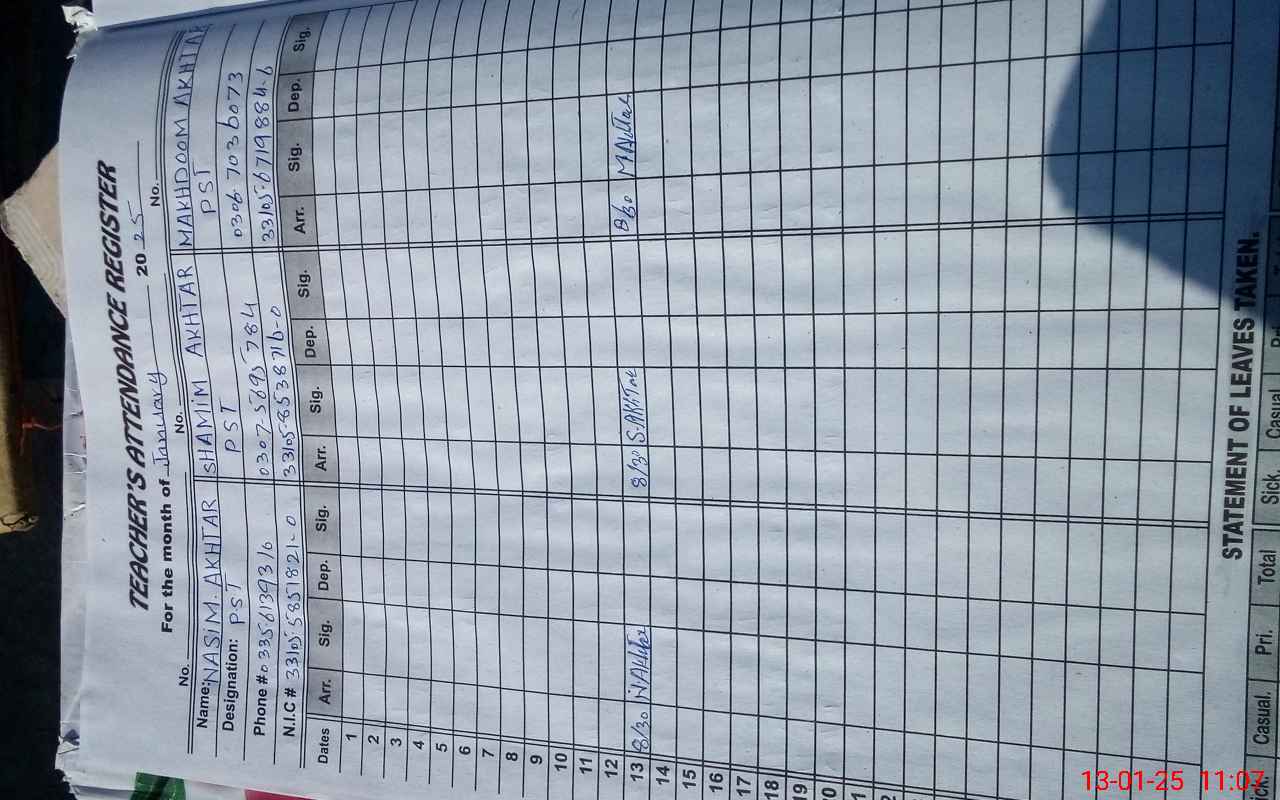 TEACHER'S ATTENDANCE REGISTER
For the month of January 2025
No. No. No.
Name: NASIM AKHTAR SHAMIM AKHTAR MAKHDOOM AKHTAR
Designation: PST PST PST
Phone # 03356139310 0307-5695784 0306-7036073
N.I.C # 33105-5851821-0 33105-8538716-0 33105-6719884-6
Dates Arr. Sig. Dep. Sig. Arr. Sig. Dep. Sig. Arr. Sig. Dep. Sig.
1
2
3
4
5
6
7
8
9
10
11
12
13 8/30 NAkhtar 8/30 S.AKHTAR 8/30 MAkhtar
14
15
16
17
18
19
20
STATEMENT OF LEAVES TAKEN.
Casual. Pri. Total Sick Casual
13-01-25 11:07